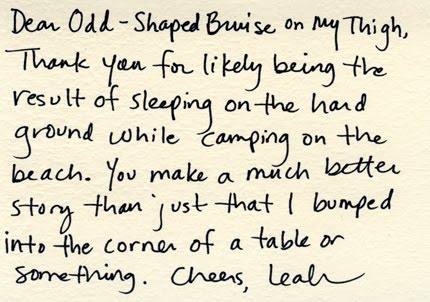 Dear Odd-Shaped Bruise on My Thigh,
Thank you for likely being the
result of sleeping on the hard
ground while camping on the
beach. You make a much better
story than just that I bumped
into the corner of a table or
something. Cheers, Leah